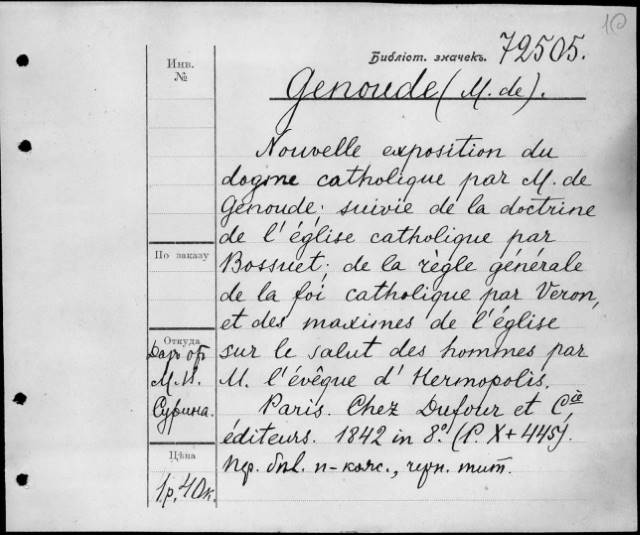 10
Библіот. значекъ. 72505.
Инв.
№
Genoude (M. de).
Nouvelle exposition du
dogme catholique par M. de
Genoude; suivie de la doctrine
de l'église catholique par
Bossuet; de la règle générale
de la foi catholique par Veron,
et des maximes de l'église
sur le salut des hommes par
M. l'évêque d'Hermopolis.
Paris. Chez Dufour et Cie,
éditeurs. 1842 in 8º. (P. X+445).
По заказу
Откуда
Даръ отъ
М. И.
Сурина.
Цѣна
1р. 40к.